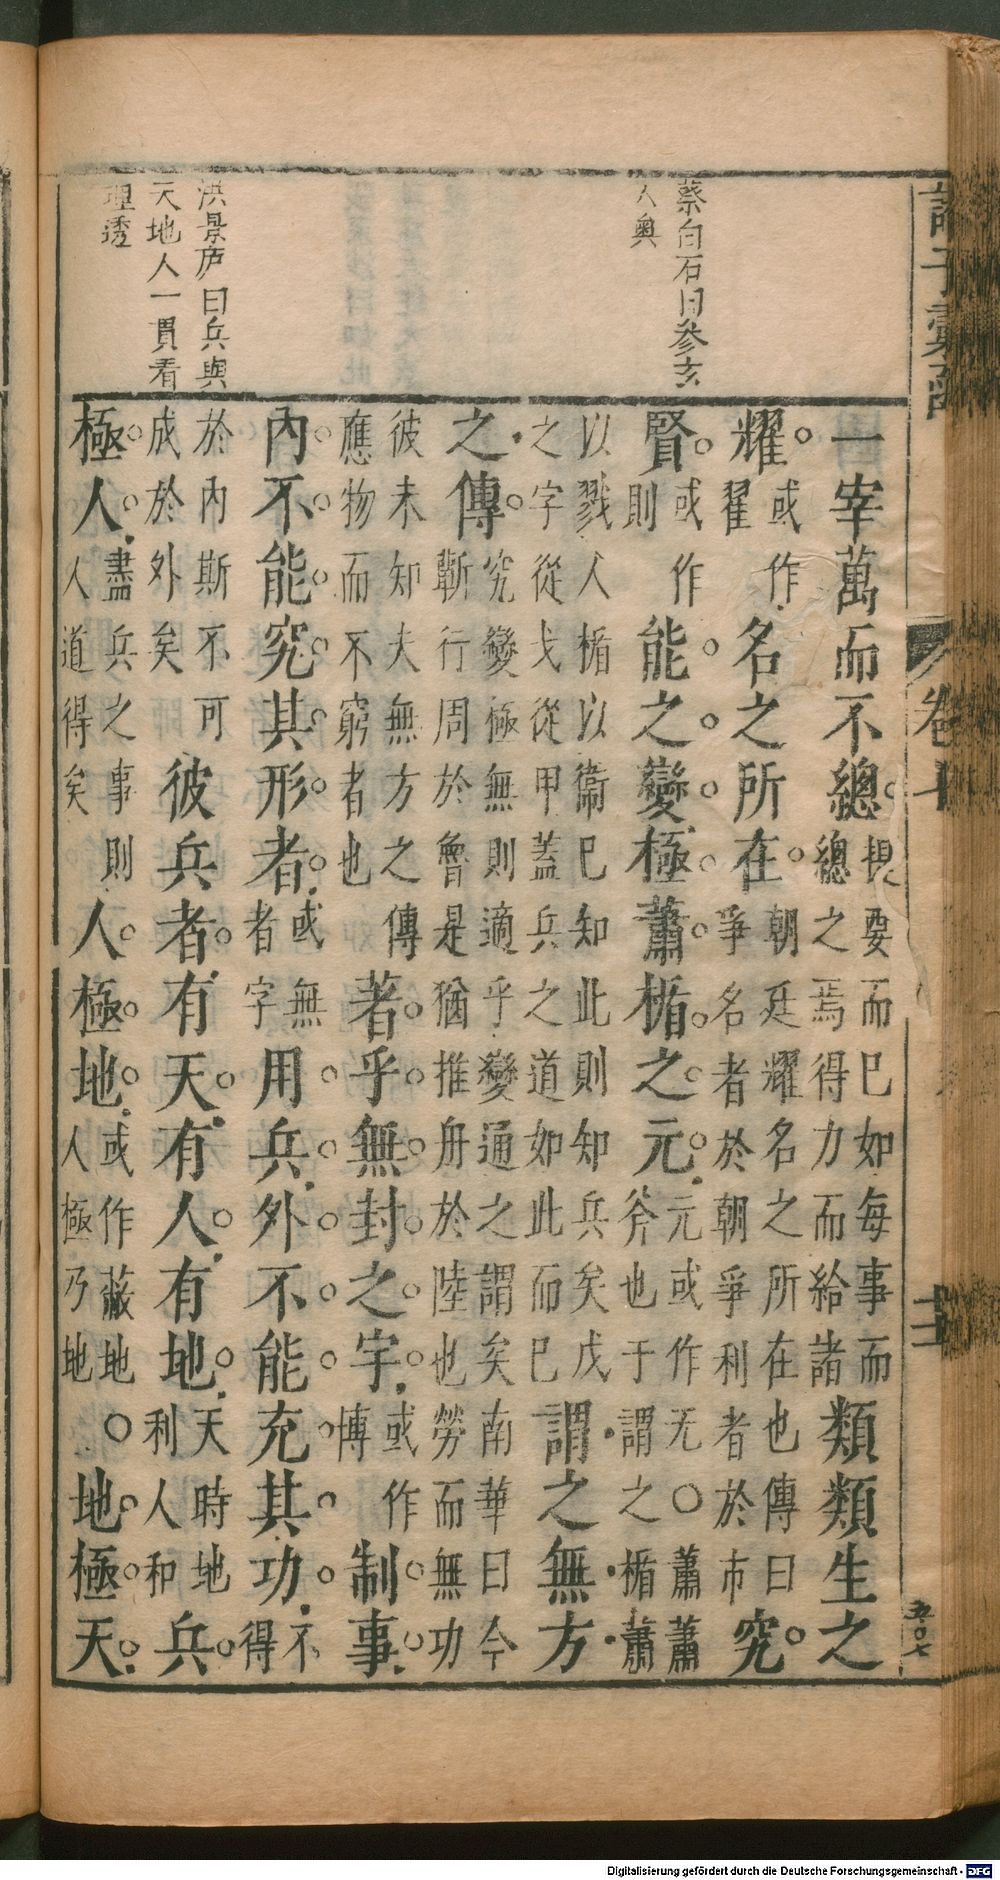 諸子彙函
卷十
蔡白石曰參玄
入奧
洪景庐曰兵與
天地人一貫看
理透
一宰萬而不總。要而已如每事而總之焉得力而給諸類類生之
耀。或作翟名之所在。朝廷耀名之所在也傳曰爭名者於朝爭利者於市究。
賢。或作則能。之。變。極。蕭。楯。之。元。元或作无○蕭蕭斧也于謂之楯蕭
以戮人楯以衞已知此則知兵矣戊之字從戈從甲蓋兵之道如此而已謂之無方
之傳。究變極無則適乎變通之謂矣南華曰今蘄行周於魯是猶推舟於陸也勞而無功
彼未知夫無方之傳應物而不窮者也著。乎。無。封。之。宇。或作博制。事。
內。不。能。究。其。形。者。或無者字用。兵。外。不。能。充。其。功。不得
於內斯不可成於外矣彼兵者。有天。有人。有地。天時地利人和兵。
極。人。盡兵之事則人道得矣人。極。地。或作蔽地人極乃地○地。極。天。
五〇七
Digitalisierung gefördert durch die Deutsche Forschungsgemeinschaft - DFG